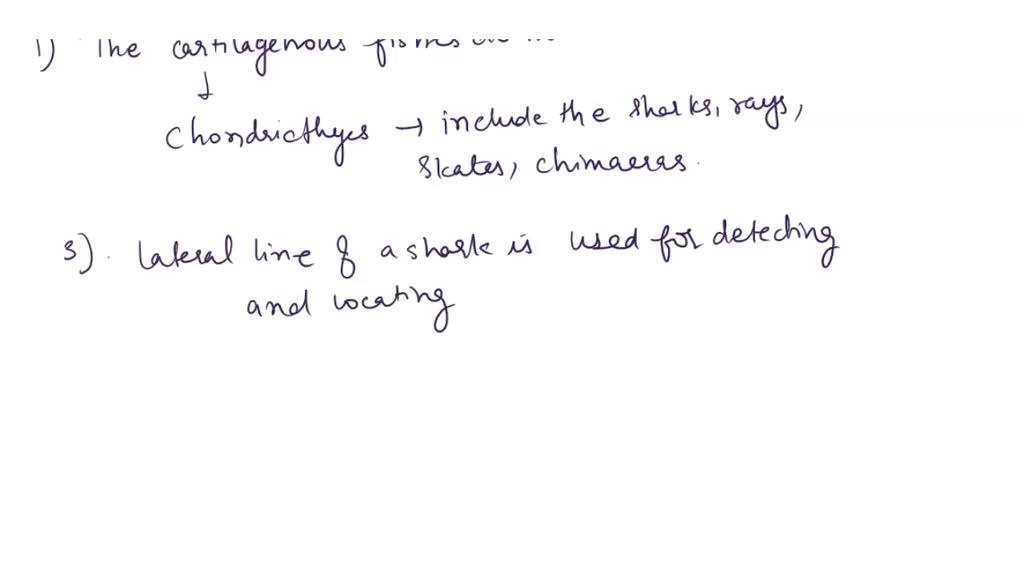 1) The cartilagenous
↓
Chondricthyes → include the sharks, rays,
skates, chimaeras.
3). lateral line of a shark is used for detecting
and locating